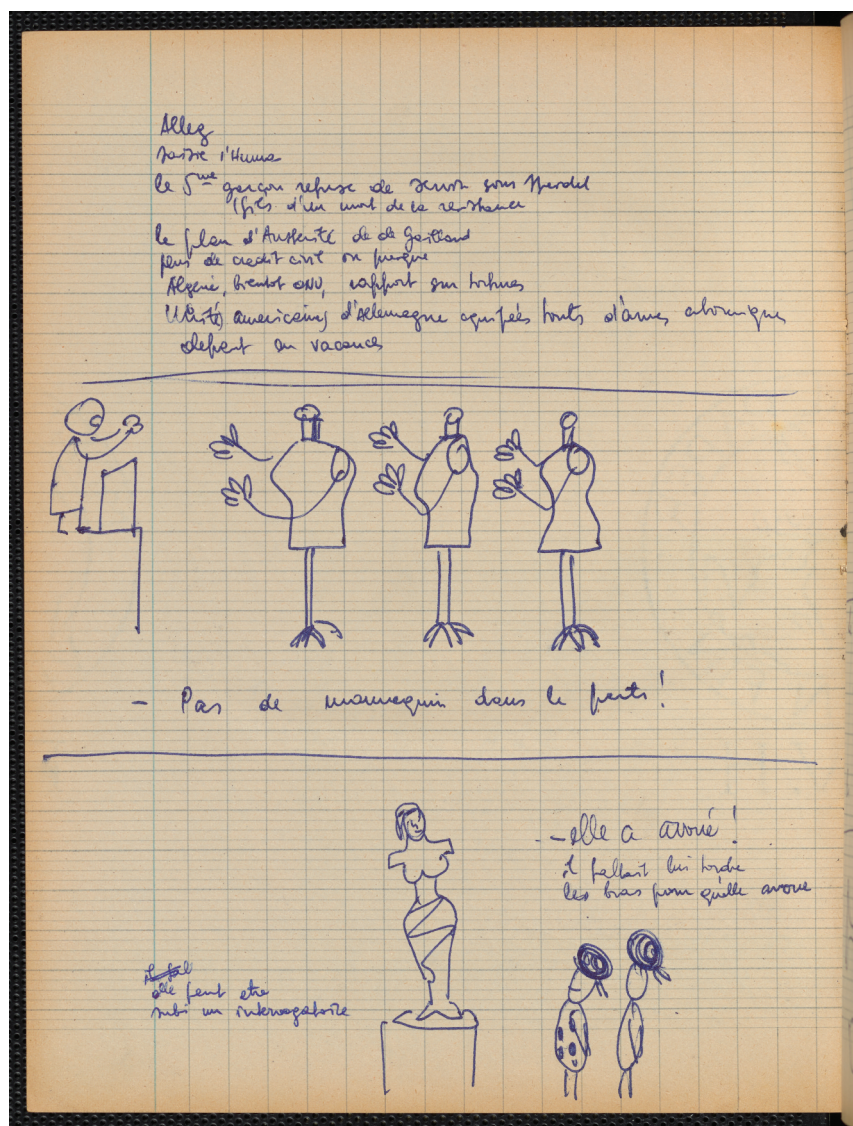 Alleg
saisie l'Huma
le 5me garçon refuse de servir sous Speidel
(fils d'un mort de la resistance
le plan d'Austerité de de Gaillard
plus de credit civil on purge
Algerie, bientot ONU, rapport sur tortures
Unités americaines d'Allemagne equipées touts d'armes atomique
depart en vacances
- Pas de mannequin dans le parti!
- elle a avoué!
il fallait lui tordre
les bras pour qu'elle avoue
elle peut etre
subi un interrogatoire